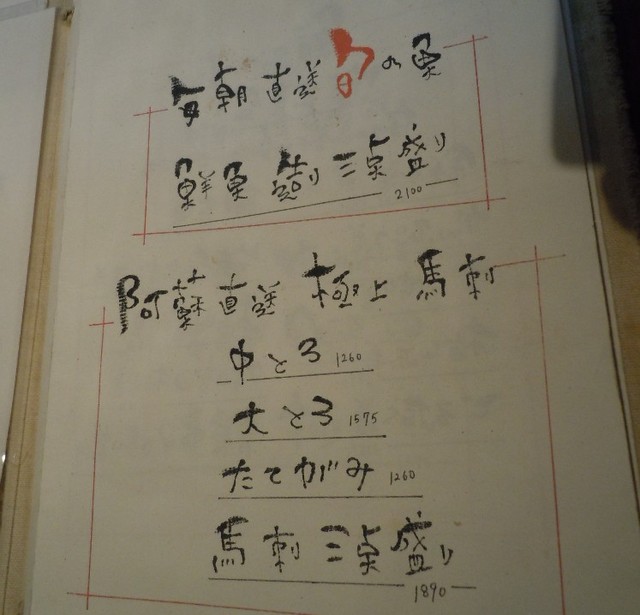 毎朝直送旬の魚
鮮魚造り三点盛り 2100
阿蘇直送 極上 馬刺
中とろ 1260
大とろ 1575
たてがみ 1260
馬刺三点盛り 1890